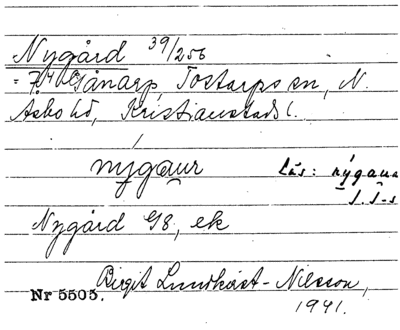 Nygård 39/256
= 7:4 Gånarp, Tostarps sn, N.
Asbo hd, Kristianstads l.
nygaur
Läs: nygaur
J. S-s
Nygård G8, ek
Birgit Lundkvist-Nilsson,
Nr 5503. 1941.